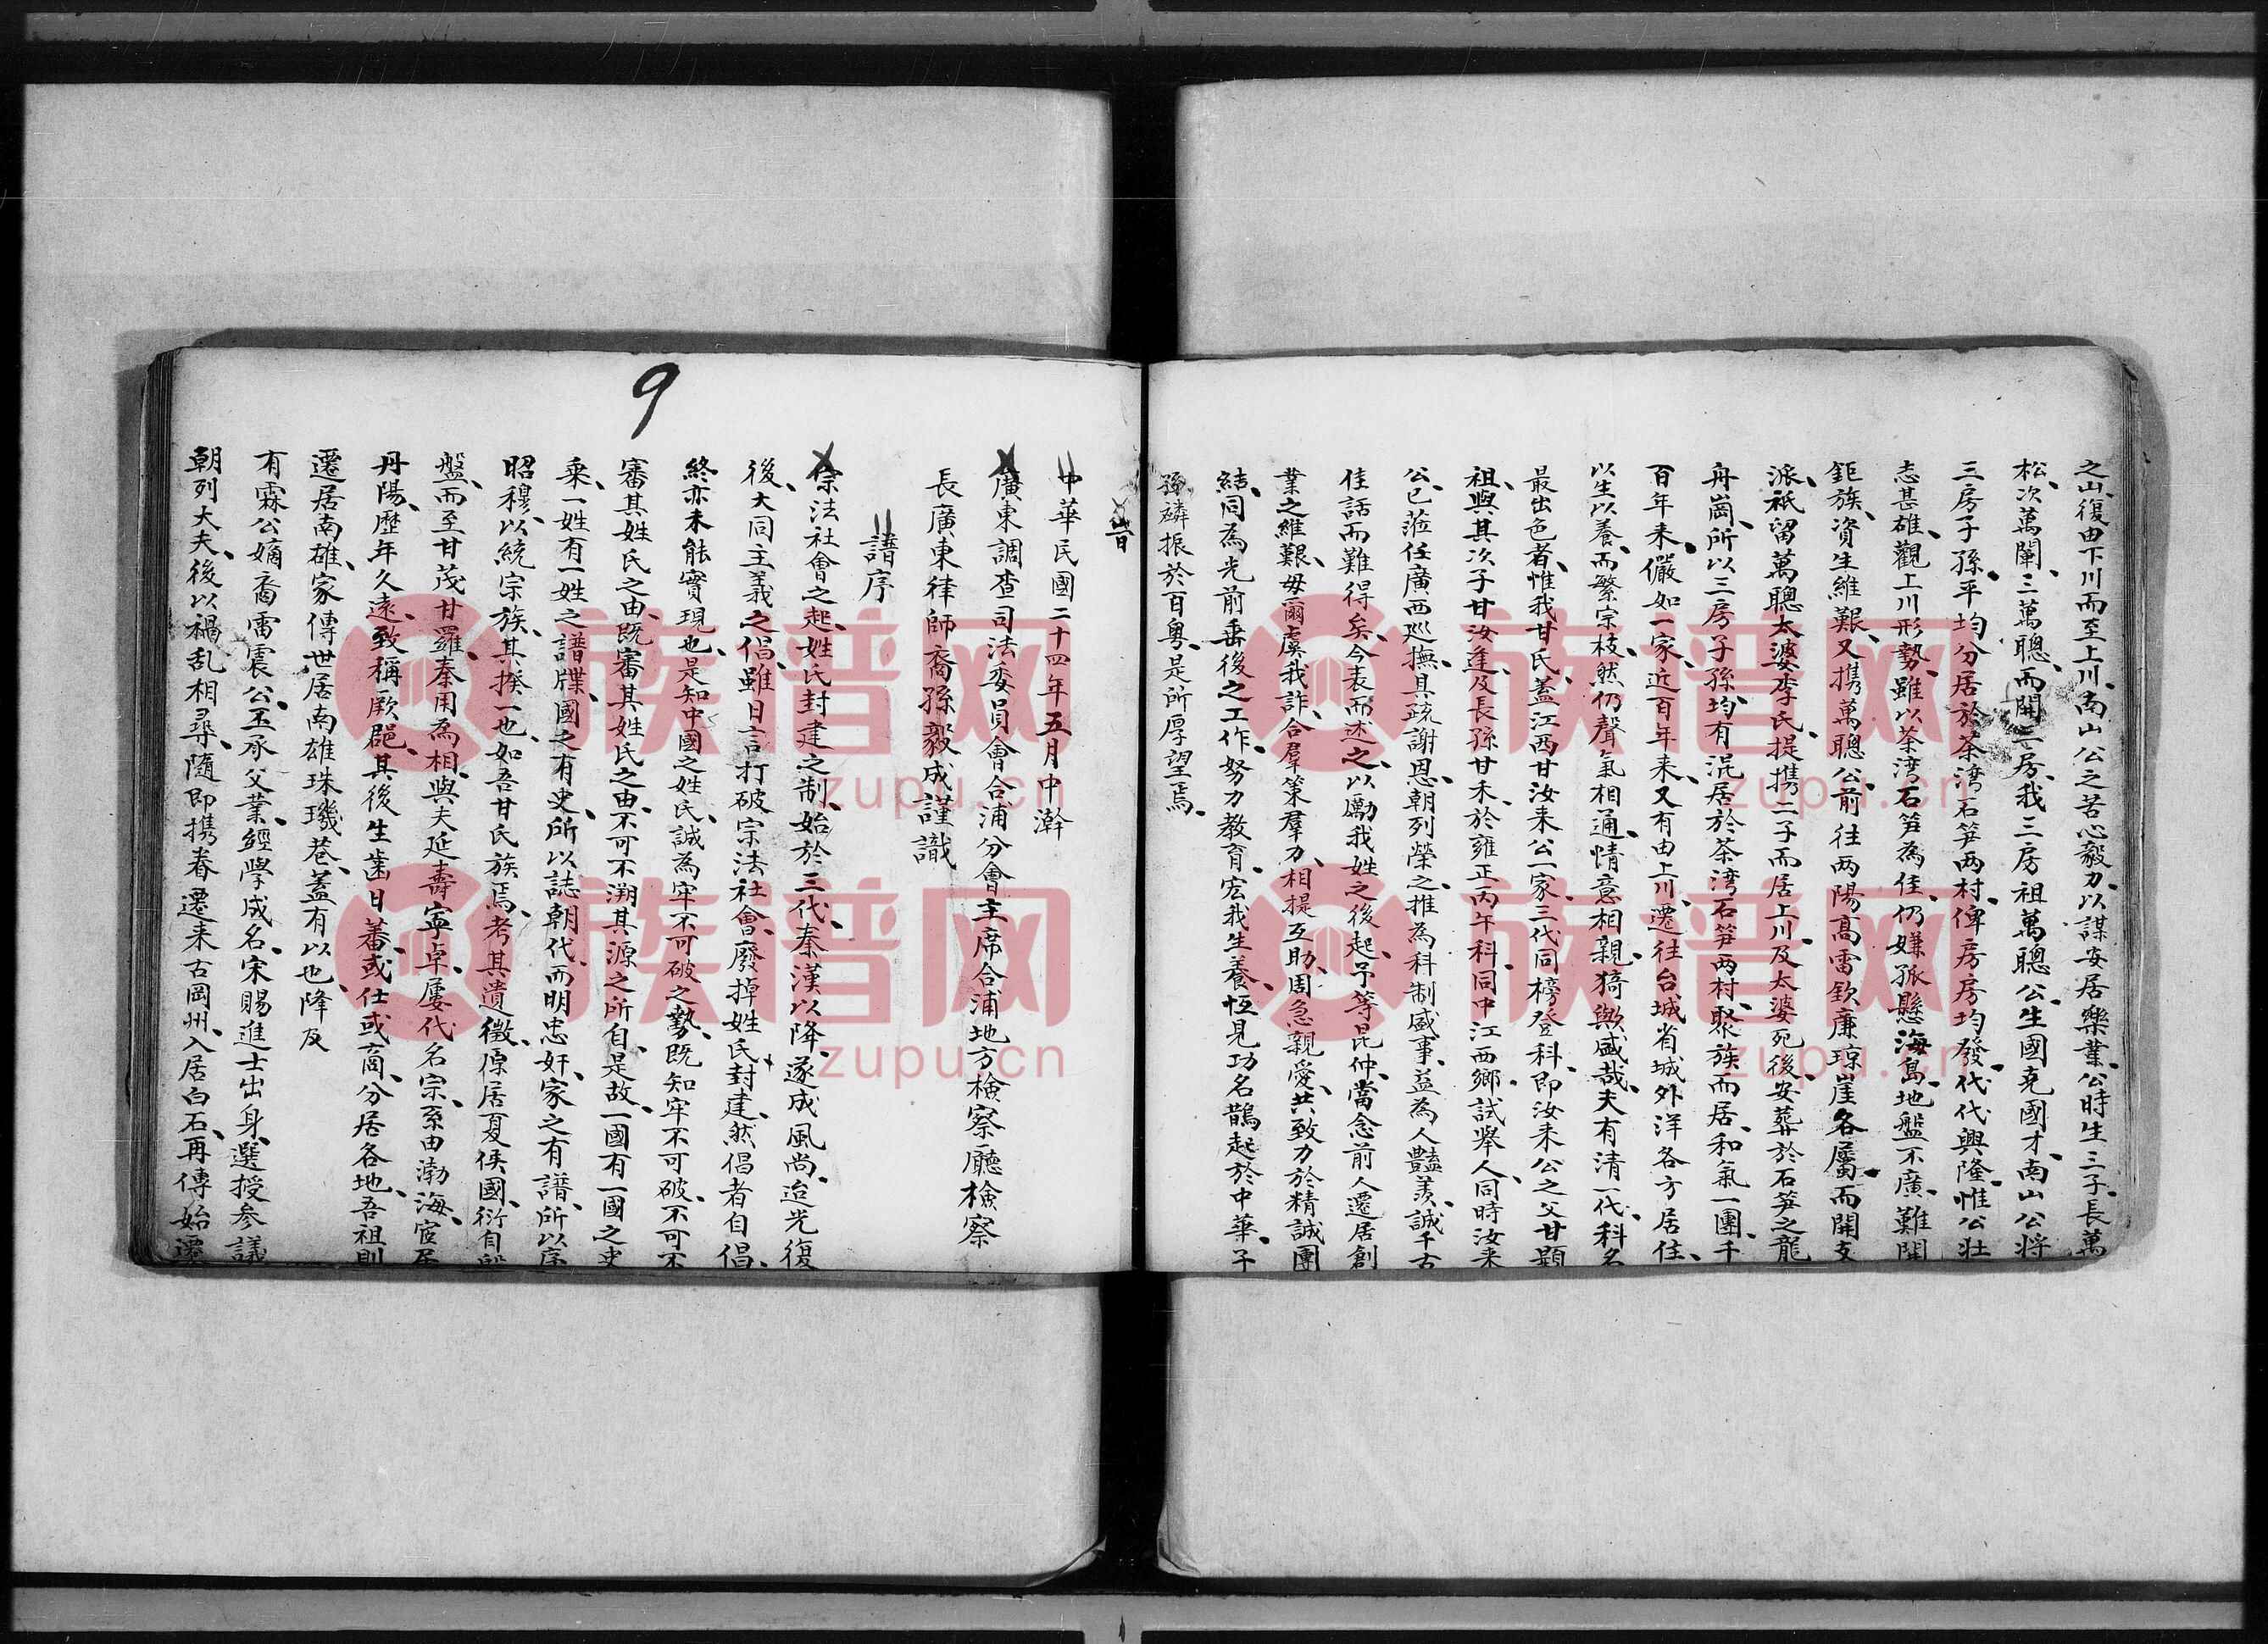 之山、復由下川而至上川、南山公之苦心毅力、以謀安居樂業、公時生三子、長萬
松、次萬闌、三萬聰、而開三房、我三房祖萬聰公、生國堯國才、南山公將
三房子孫、平均分居於茶湾石笋两村、俾房房均發、代代興隆、惟公壮
志甚雄、觀上川形勢、雖以茶湾石笋為佳、仍嫌孤懸海島、地盤不廣、難開
鉅族、資生維艱、又携萬聰公、前往两陽高雷欽廉琼崖各屬、而開支
派、祇留萬聰太婆李氏、提携二子而居上川、及太婆死後、安葬於石笋之龍
舟崗、所以三房子孫、均有混居於茶湾石笋两村、聚族而居、和氣一團、千
百年来、儼如一家、近百年来、又有由上川、遷往台城省城外洋各方居住、
以生以養、而繁宗枝、然仍聲氣相通、情意相親、猗歟盛哉、夫有清一代、科名
最出色者、惟我甘氏、蓋江西甘汝来公一家、三代同榜登科、即汝来公之父甘顯
祖、與其次子甘汝逢、及長孫甘禾、於雍正丙午科、同中江西鄉試舉人、同時汝来
公、已蒞任廣西巡撫、具疏謝恩、朝列榮之、推為科制盛事、益為人豔羡、誠千古
佳話而難得矣、今表而述之、以勵我姓之後起、予等昆仲、當念前人遷居創
業之維艱、毋爾虞我詐、合羣策羣力、相提互助、周急親愛、共致力於精誠團
結、同為光前垂後之工作、努力教育、宏我生養、恒見功名鵲起於中華、子
孫磷振於百粵、是所厚望焉、
旹
中華民國二十四年五月中澣
廣東調查司法委員會合浦分會主席合浦地方檢察廳檢察
長廣東律師裔孫毅成謹識
譜序
宗法社會之起、姓氏封建之制、始於三代、秦漢以降、遂成風尚、迨光復
後、大同主義之倡、雖日言打破宗法社會、廢掉姓氏封建、然倡者自倡、
終亦未能實現也、是知中國之姓氏、誠為牢不可破之勢、既知牢不可破、不可不
審其姓氏之由、既審其姓氏之由、不可不溯其源之所自、是故一國有一國之史
乘、一姓有一姓之譜牒、國之有史、所以誌朝代、而明忠奸、家之有譜、所以序
昭穆、以統宗族、其揆一也、如吾甘氏族焉、考其遺徵、原居夏侯國、衍自般
盤、而至甘茂甘羅、秦用為相、與夫延壽寧卓、屢代名宗、系由渤海、宦居
丹陽、歷年久遠、致稱厥郡、其後生齒日蕃、或仕或商、分居各地、吾祖則
遷居南雄、家傳世居南雄珠璣巷、蓋有以也、降及
有霖公嫡裔雷震公、丕承父業、經學成名、宋賜進士出身、選授參議
朝列大夫、後以禍乱相尋、隨即携眷遷来古岡州、入居白石、再傳始遷
9
族譜网
zupu.cn
族譜网
zupu.cn
族譜网
zupu.cn
族譜网
zupu.cn